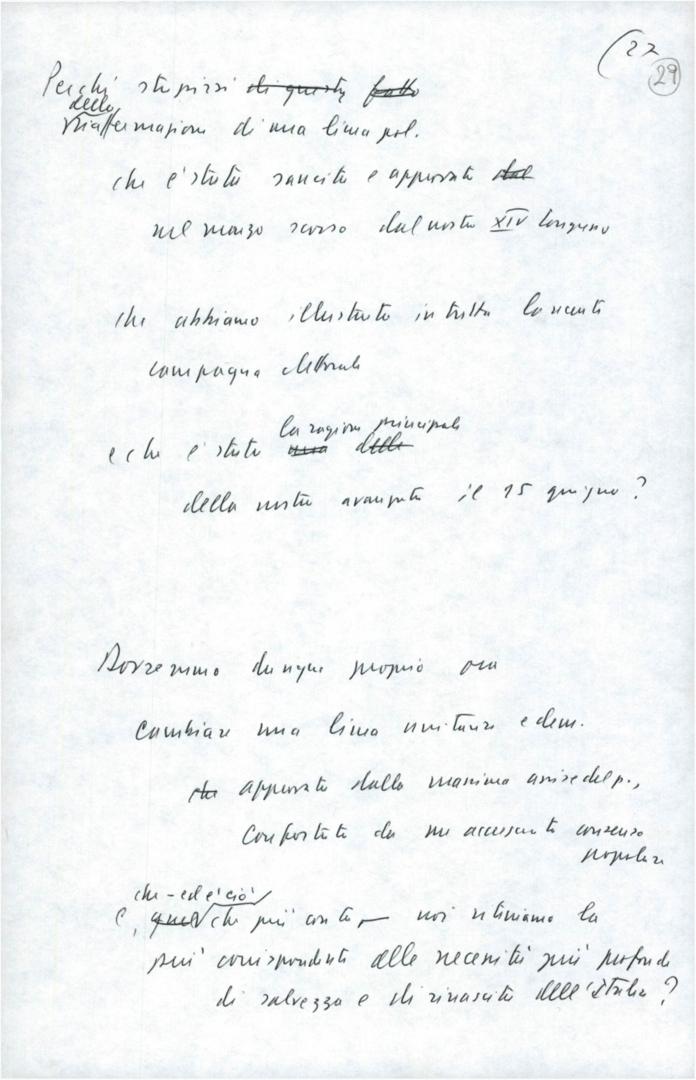 (27
29
Perché stupirsi di questo fatto
della
riaffermazione di una linea pol.
che è stata sancita e approvata dal
nel marzo scorso dal nostro XIV Congresso
che abbiamo illustrato in tutta la recente
campagna elettorale
e che è stata una delle
la ragione principale
della nostra avanzata il 15 giugno?
Dovremmo dunque proprio ora
cambiare una linea unitaria e dem.
che approvata dalla massima assise del p.,
confortata da un accresciuto consenso
popolare
che - ed è ciò
e, quel che più conta — noi riteniamo la
più corrispondente alle necessità più profonde
di salvezza e di rinascita dell'Italia?